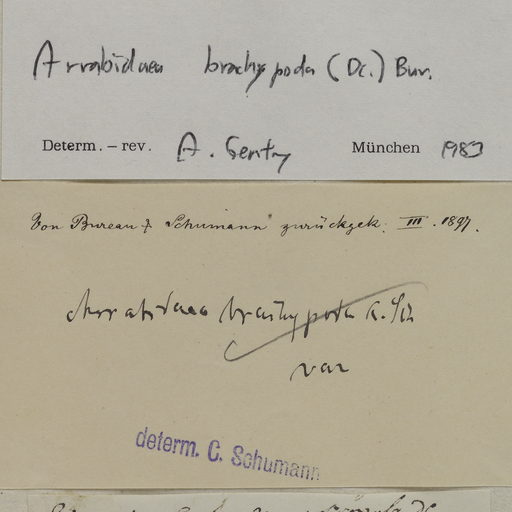 Arrabidaea brachypoda (DC.) Bur.
Determ. – rev. A. Gentry München 1983
Von Bureau & Schumann zurückgek. III. 1897.
Arrabidaea brachypoda
var
determ. C. Schumann